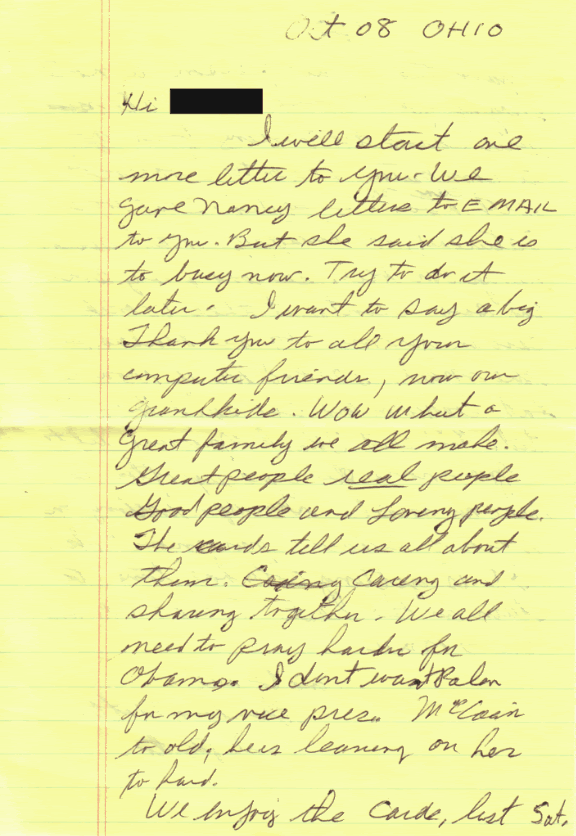 Oct 08 OHIO
Hi
I will start one
more letter to you. We
gave Nancy letters to EMAIL
to you. But she said she is
to busy now. Try to do it
later. I want to say a big
Thank you to all your
computer friends, now our
grandkids. Wow what a
great family we all make.
Great people real people
Good people and Loving people.
The cards tell us all about
them. Caring and
sharing together. We all
need to pray harder for
Obama. I dont want Palen
for my vice pres. McCain
to old, he is leaning on her
to hard.
We enjoy the Cards, last Sat.